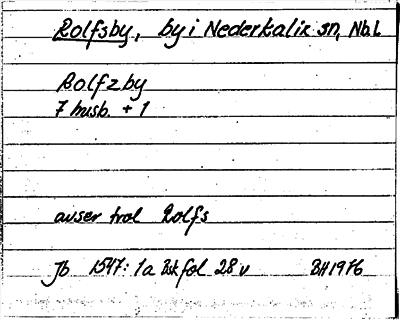 Rolfsby, by i Nederkalix sn, Nb.l.
Rolfzby
7 husb. + 1
avser trol Rolfs
Jb 1547: 1a Bsk fol 28 v BH 1976